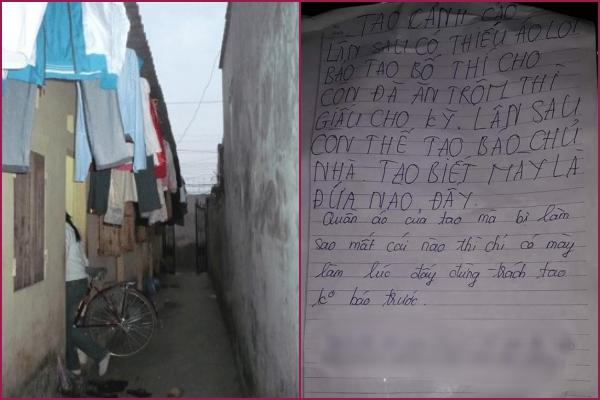 TAO CẢNH CÁO
LẦN SAU CÓ THIẾU ÁO LÓT
BẢO TAO BỐ THÍ CHO
CÒN ĐÃ ĂN TRỘM THÌ
GIẤU CHO KỸ. LẦN SAU
CÒN THẾ TAO BÁO CHỦ
NHÀ. TAO BIẾT MÀY LÀ
ĐỨA NÀO, ĐẤY.
Quần áo của tao mà bị làm
sao mất cái nào thì chỉ có mày
làm lúc đấy đừng trách tao
ko báo trước.